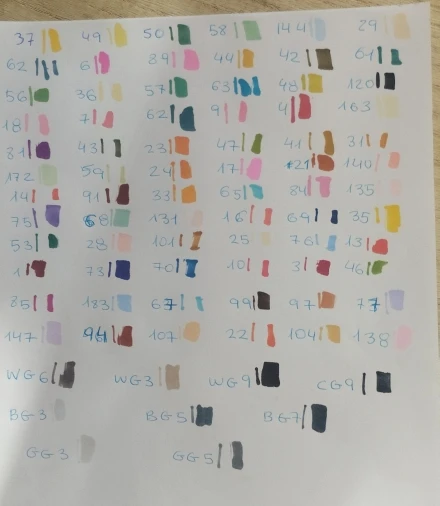 37 49 50 58 144 29
62 6 89 44 42 61
56 36 57 63 48 120
18 7 62 9 4 163
81 43 23 47 41 31
172 59 24 17 21 140
14 91 33 65 84 135
75 68 131 16 69 35
53 28 101 25 76 13
1 73 70 10 3 46
85 183 67 99 97 77
147 94 107 22 104 138
WG6 WG3 WG9 CG9
BG3 BG5 BG7
GG3 GG5